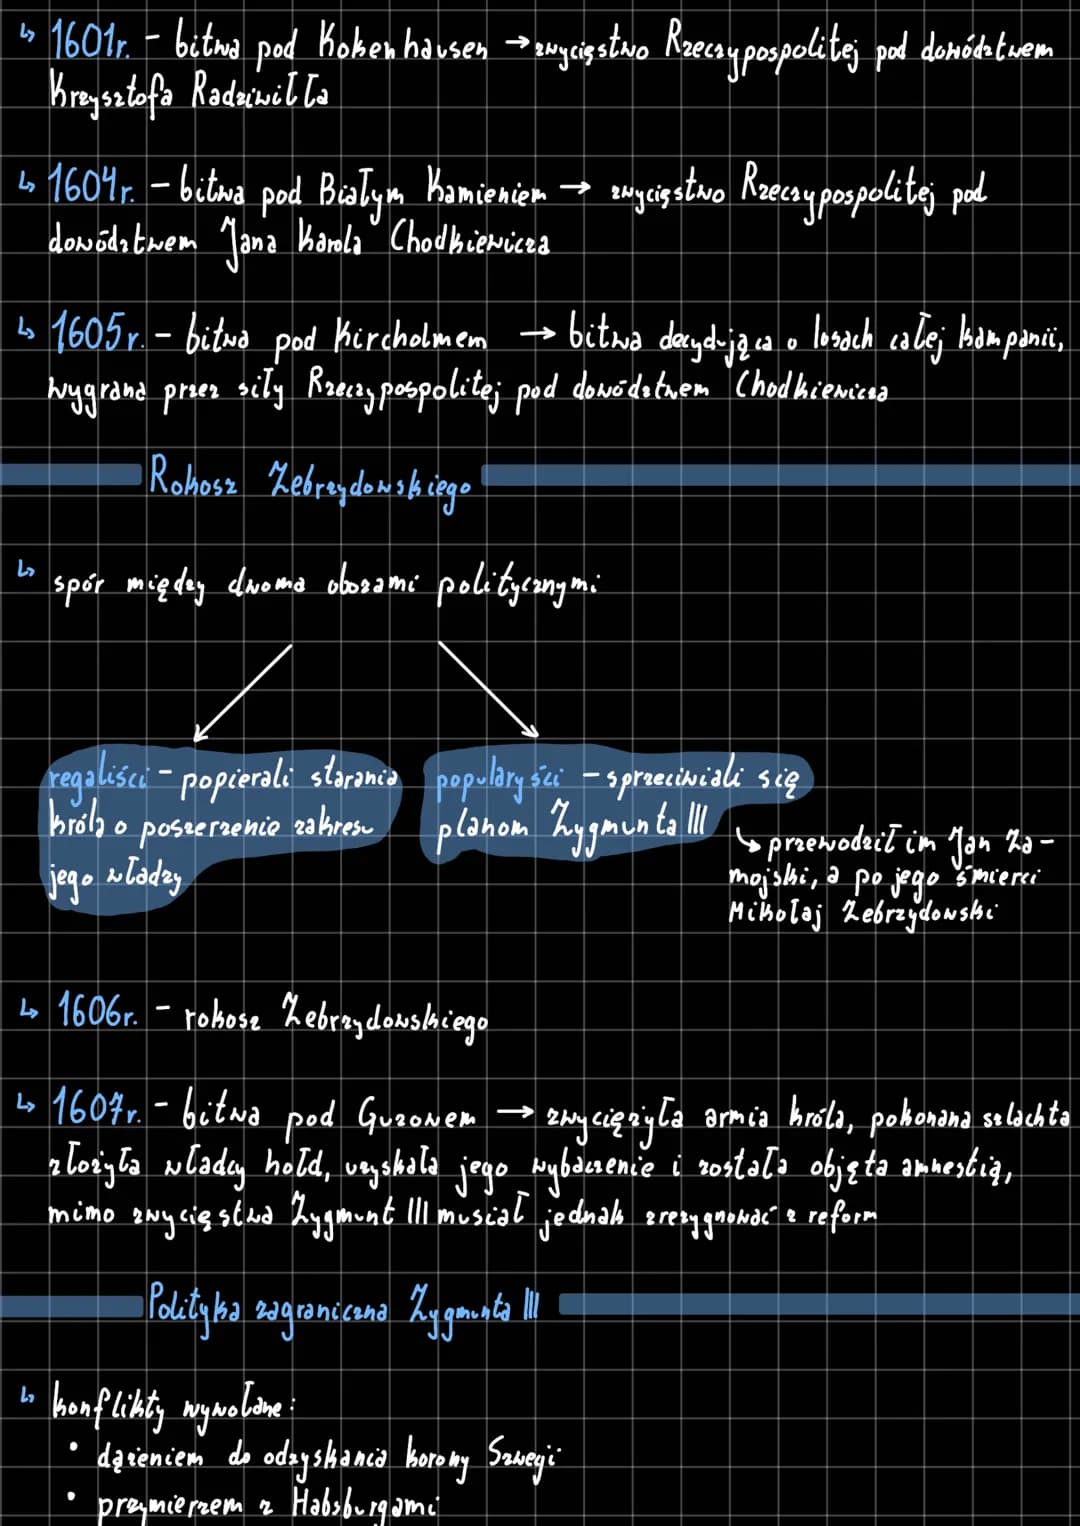 ↳ 1601r. - bitwa pod Kokenhausen → zwycięstwo Rzeczypospolitej pod dowództwem
Krzysztofa Radziwiłła
↳ 1604r. - bitwa pod Białym Kamieniem → zwycięstwo Rzeczypospolitej pod
dowództwem Jana Karola Chodkiewicza
↳ 1605r. - bitwa pod Kircholmem → bitwa decydująca o losach całej kampanii,
wygrana przez siły Rzeczypospolitej pod dowództwem Chodkiewicza
Rokosz Zebrzydowskiego
↳ spór między dwoma obozami politycznymi
regaliści - popierali starania
króla o poszerzenie zakresu
jego władzy
popularyści - sprzeciwiali się
planom Zygmunta III
↳ przewodził im Jan Za-
mojski, a po jego śmierci
Mikołaj Zebrzydowski
↳ 1606r. - rokosz Zebrzydowskiego
↳ 1607r. - bitwa pod Guzowem → zwyciężyła armia króla, pokonana szlachta
złożyła władcy hołd, uzyskała jego wybaczenie i została objęta amnestią,
mimo zwycięstwa Zygmunt III musiał jednak zrezygnować z reform
Polityka zagraniczna Zygmunta III
↳ konflikty wywołane:
• dążeniem do odzyskania korony Szwecji
• przymierzem z Habsburgami